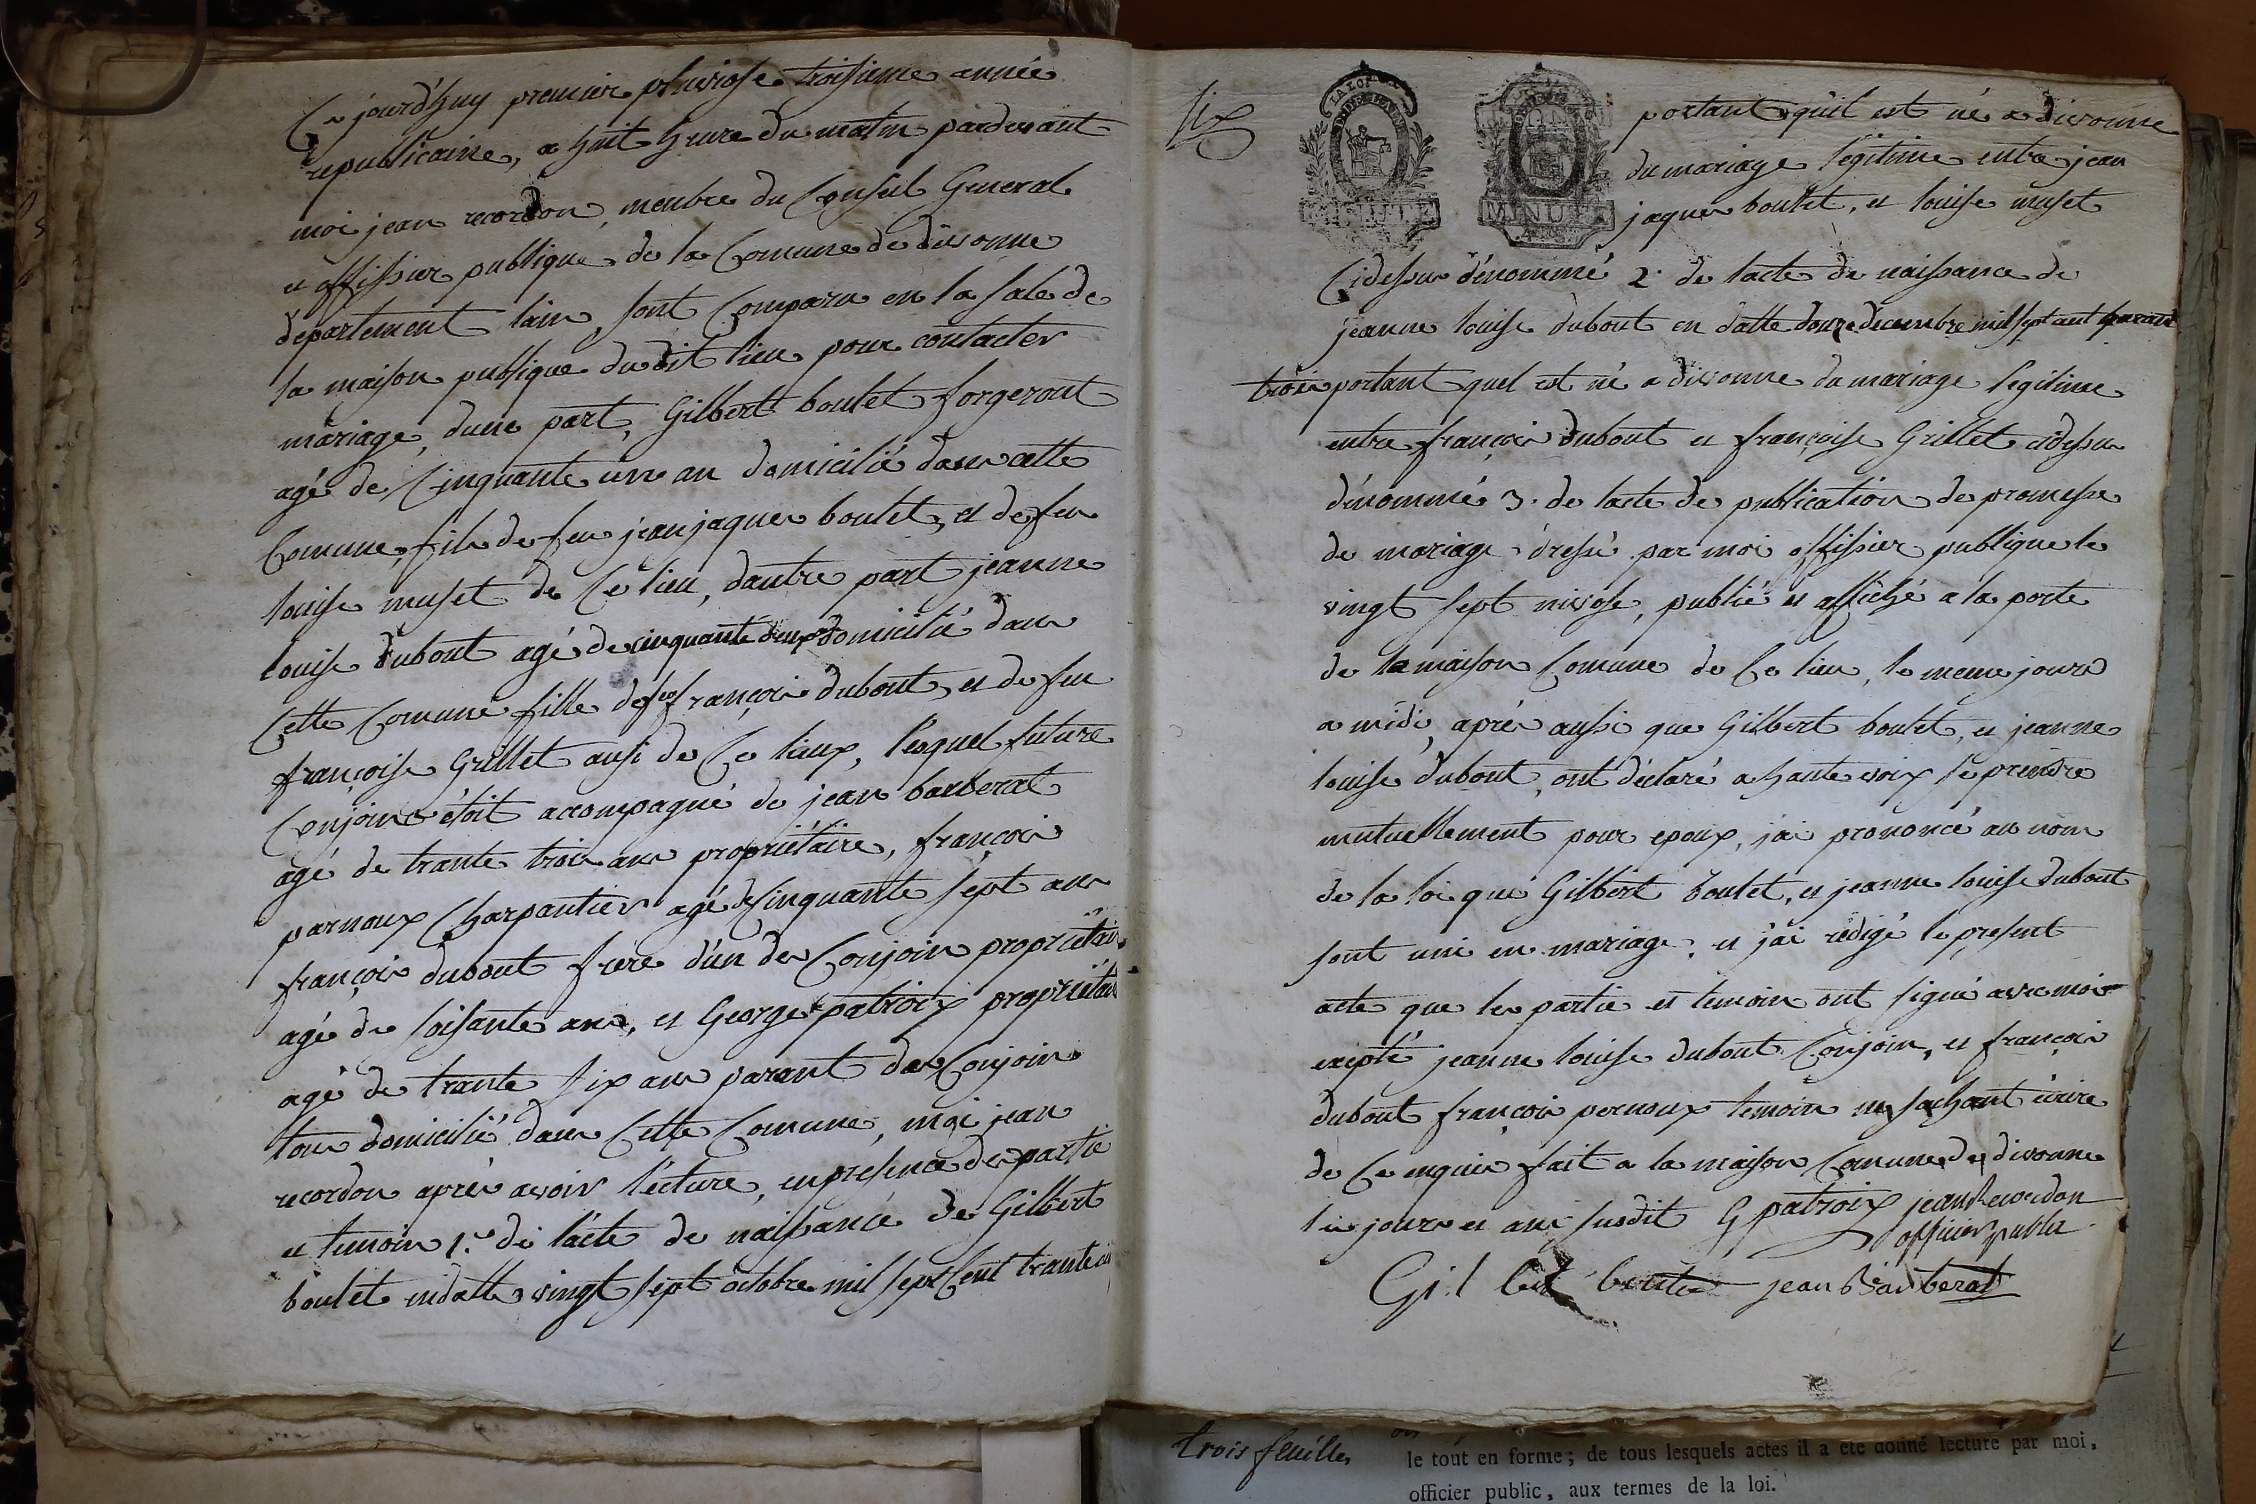 Ce jourd'huy premier pluviose troisieme année
republicaine, a huit heure du matin pardevant
moi jean recordon membre du Conseil General
et offissier publique de la Comune de divonne
departement lain, sont Comparu en la sale de
la maison publique dudit lieu pour contacter
mariage, dune part, Gilbert boulet forgeront
agé de Cinquante un an domicilié dans cette
Comune, fils de feu jean jaques boulet, et de feu
louise muset de Ce lieu, dautre part jeanne
louise dubout agé de cinquante deux domicilié dans
Cette Comune fille de feu françois dubout, et de feu
françoise Grillet ausi de Ce lieux, lesquel future
Conjoins étoit acompagné de jean barberat
agé de trante trois ans propriétaire, françois
parnoux Charpantier agé de sinquante sept ans
françois dubout frere d'un des Conjoin proprietaire
agé de soisante ans, et George patroix propriétaire
agé de trante six ans parant des Conjoins
tous domicilié dans Cette Comune, moi jean
recordon après avoir lecture, en presence des partie
et temoin 1.º de l'acte de naissance de Gilbert
boulet endatte vingt sept octobre mil sept Cent trante
six
LA LOI
MINUTE
portant qu'il est né a divonne
du mariage légitime entre jean
jaques boulet, et louise muset
Cidessus dénommé 2. de lacte de naissance de
jeanne louise dubout en datte douze decembre mil sept cent quarante
trois portant quel est né a divonne du mariage legitime
entre françois dubout et françoise Grillet cidessus
dénommé 3. de lacte de publication de promesse
de mariage dressé par moi offissier publique le
vingt sept nivose, publié et affiché a la porte
de la maison Comune de Ce lieu, le meme jours
a midi, après aussi que Gilbert boulet, et jeanne
louise dubout, ont déclaré a haute voix se prendre
mutuellement pour epoux, j'ai prononcé au nom
de la loi que Gilbert boulet, et jeanne louise dubout
sont uni en mariage, et j'ai rédigé le present
acte que les partie et temoin ont signé avec moi
excepté jeanne louise dubout Conjoin, et françois
dubout françois pernoux temoin ne sachant écrire
de Ce enquis fait a la maison Comune de divonne
les jours et ans susdit G patroix jean Recordon
officier public
Gilbert boulet jean Barberat
trois feuilles
le tout en forme; de tous lesquels actes il a été donné lecture par moi,
officier public, aux termes de la loi.